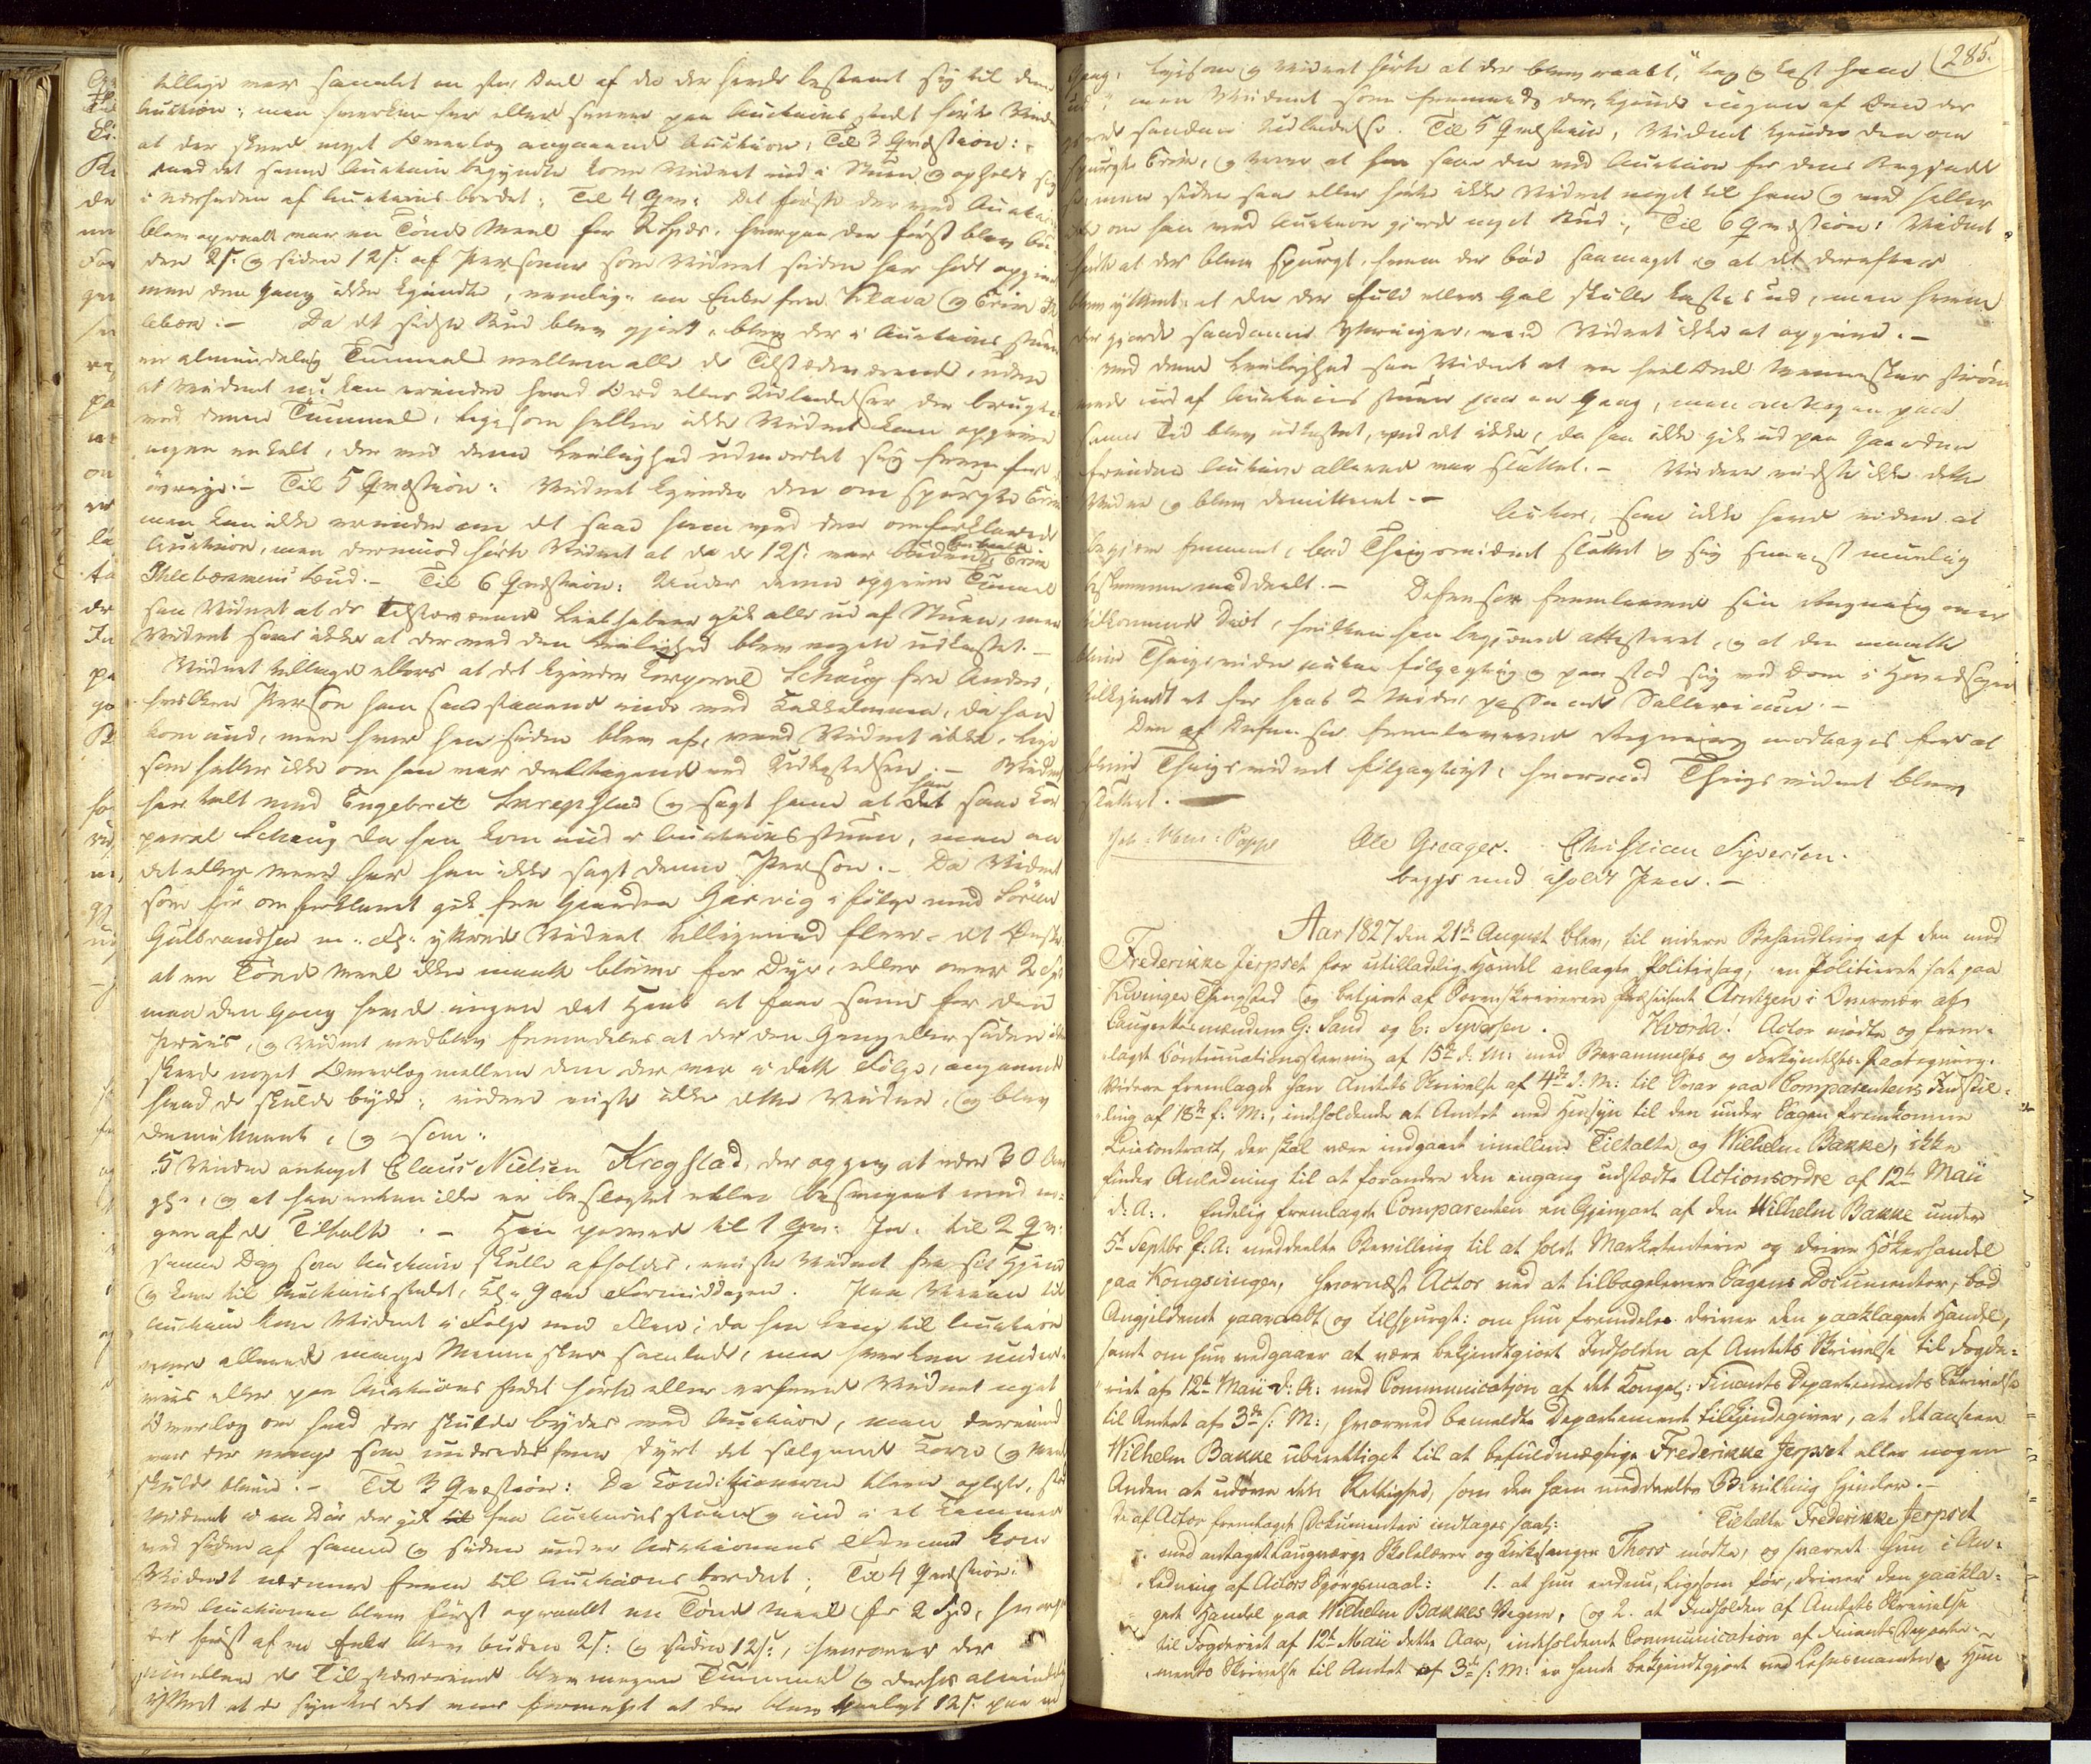 tillige var samlet en stor Deel af de der havde bestemt sig til denne
Auction; men hverken her eller senere paa Auctions stedet hørte Vidnet
at der skeede noget Overlæg angaaende Auction; Til 3 Qvæstion:
ved det samme Auctionen begyndte kom Vidnet ind i Stuen og opholdt sig
i nærheden af Auctionsbordet; Til 4 Qvn: Det første der ved Auctionen
blev opraabt var en Tønde Meel for 2 Spdr., hvorpaa der først blev bu-
den 2 s: og siden 12 s: af Personer som Vidnet siden har hørt opgive
men den Gang ikke kjendte, nemlig: en Enke fra
Da det sidste Bud blev gjort, blev der i Auctions stuen
en almindelig Tummel mellem alle de Tilstædeværende, uden
at Vidnet nu kan erindre hvad Ord eller Udladelser der brugtes
ved denne Tummel, ligesom heller ikke Vidnet kan opgive
nogen enkelt, der ved denne Leilighed udmærket sig frem for
øvrige. Til 5 Qvæstion: Vidnet kjender den om spurgte
men kan ikke erindre om det saae ham ved den omforklarede
Auction, men derimod hørte Vidnet at de 12 s: var
Bud. Til 6 Qvæstion: Under denne opgivne Tummel
saae Vidnet at de tilstæværende Liebhabere gik alle ud af Stuen, men
Vidnet saae ikke at der ved den Leilighed blev nogen udkastet.
Vidnet tillagde ellers at det kjender Corporal Schaug fra
hvilken Person han saae staaende inde ved Kakkelovnen, da han
kom ind, men hvor han siden blev af, veed Vidnet ikke, lige
som heller ikke om han var deeltagende ved Udkastelsen. Vidnet
har talt med Engebret og sagt ham at han saae Cor
poral Schaug da han kom ind i Auctionsstuen, men an
det eller meer har han ikke sagt denne Person. Da Vidnet
som før omforklaret gik fra Gaarden i følge med Søren
Gulbrandsen m. fl. yttrede Vidnet tilligemed flere det Ønske
at en Tønde Meel ikke maatte blive for dyr, eller over 2 Spd
men den Gang havde ingen det Haab at faae samme for den
Priis, og Vidnet vedblev fremdeles at der den Gang eller siden ikke
skeede noget Overlæg mellem dem der var i dette Følge, angaaende
hvad de skulde byde; videre viste ikke dette Vidne, og blev
demitteret, og som:
5 Vidne antaget Claus Nielsen Krogstad, der opgav at være 30 Aar
gl:, og at han enten ikke er beslægtet eller besvogret med no-
gen af de Tiltalte. Han svarede til 1 Qvn: Ja. til 2 Qvn:
samme Dag som Auctionen skulle afholdes, reiste Vidnet fra sit Hjem
og kom til Auctionsstedet, Kl: 9 om Formiddagen. Paa Veien til
Auctionen kom Vidnet i Følge med flere; da han kom til Auctionen
vare allerede mange Mennesker samlede, men hverken under-
veis eller paa Auctions stedet hørte eller erfarede Vidnet noget
Overlæg om hvad der skulde bydes ved Auction, men derimod
var der mange som undredes hvor dyrt det solgende Korn og Meel
skulde blive. Til 3 Qvæstion: Da Conditionerne bleve oplæste, stod
Vidnet i en Dør der gik fra Auctionsstuen og ind i et Kammer
ved siden af samme og siden under Auctionens Fremme kom
Vidnet nærmere frem til Auctionsbordet; Til 4 Qvæstion:
Ved Auctionen blev først opraabt en Tønde Meel for 2 Spd, hvorpaa
der først af en Enke blev buden 2 s: og siden 12 s:, hvorover der
imellem de Tilstæværende blev megen Tummel og deres almindelig
yttret at de syntes det var formeget at der blev paalagt 12 s: paa en
285.
Gang, ligesom og Vidnet hørte at der blev raabt, "tag og kast ham
ud" men Vidnet som fremmed der, kjendte ingen af Dem der
gjorde saadan Udladelse. Til 5 Qvæstion, Vidnet kjender den om
spurgte og veed at han saae den ved Auction før dens Begyndelse
men siden saae eller hørte ikke Vidnet noget til ham og veed heller
ikke om han ved Auctionen gjorde noget Bud. Til 6 Qvæstion: Vidnet
hørte at der blev spurgt, hvem der bød saameget og at det derefter
blev yttret at den der fuld eller gal skulle kastes ud, men hvem
der gjorde saadanne Yttringer, veed Vidnet ikke at opgive.
Ved denne Leilighed saae Vidnet at en heel Deel Mennesker strøm
mede ud af Auctions stuen paa en Gang, men om nogen paa
samme Tid blev udkastet, veed det ikke, da han ikke gik ud paa Gaarden
førend Auction allerede var sluttet. Videre vidste ikke dette
Vidne og blev demitteret. Actor, som ikke havde videre at
begjere fremmet, lod Thingsvidnet slutte og sig snarest muelig
beskreven meddeelt. Defensor fremleverede sin Regning over
tilkommende Diæt, hvilken han begjerede attesteret, og at den maatte
blive Thingsvidne følgagtig og paastod sig ved Dom i Hovedsagen
tilkjendt et for hans 2 Møder passende Sallarium.
Den af Defensor fremleverede Regning modtages for at
blive Thingsvidnet følgagtig, hvormed Thingsvidnet blev
sluttet.
Ole Greager. Christian Syversen.
begge med paaholdt Pen.
Aar 1827 den 21de August blev, til videre Behandling af den mod
Frederikke Jerpset for utilladelig Handel anlagte Politiesag, en Politieret sat paa
Kurinqer Thingsted og betjent af Sorenskriveren Justitsraad Arntzen i Overvær af
Laugrettesmændene G: Sand og C: Syversen. Hvorda! Actor mødte og frem-
lagde Continuationsstevning af 15de d: M: med Berammelses og Forkyndelses Paategning.
Videre fremlagde han Amtets Skrivelse af 4de d: M: til Svar paa Comparentens Indstil-
ling af 18de f: M:, indholdende at Amtet med Hensyn til den under Sagen fremkomne
Leiecontract, der skal være indgaaet imellem Tiltalte og Wilhelm Bakke, ikke
finder Anledning til at forandre den engang udstædte Actionsordre af 12te Maii
d: A:. Endelig fremlagde Comparenten en Gjenpart af den Wilhelm Bakke under
5te Septbr f: A: meddeelte Bevilling til at holde Marketenterie og drive Høkerhandel
paa Kongsvinger, hvornæst Actor ved at tilbagelevere Sagens Documenter, bad
Angjeldende paaraabt og tilspurgt: om hun fremdeles driver den paaklagede Handel,
samt om hun vedgaaer at være bekjendtgjort Indholden af Amtets Skrivelse til Fogde-
riet af 12te Maii d: A: med Communication af det Kongel: Finants Departements Skrivelse
til Amtet af 3de s: M:, hvorved bemeldte Departement tilkjendegiver, at det anseer
Wilhelm Bakke uberettiget til at befuldmægtige Frederikke Jerpset eller nogen
Anden at udøve den Rettighed, som den ham meddeelte Bevilling hjemler.
De af Actor fremlagde Dokumenter indtages saal: Tiltalte Frederikke Jerpset
med antaget Laugværge Skolelærer og Kirkesanger Thors mødte, og svarede hun i An-
ledning af Actors Spørgsmaal: 1. at hun endnu, ligesom før, driver den paakla-
gede Handel paa Wilhelm Bakkes Vegne, og 2. at Indholden af Amtets Skrivelse
til Fogderiet af 12te Maii dette Aar, indeholdende Communication af Finants Departe-
ments Skrivelse til Amtet af 3de s: M: er hende bekjendtgjort ved Lensmanden. Hun